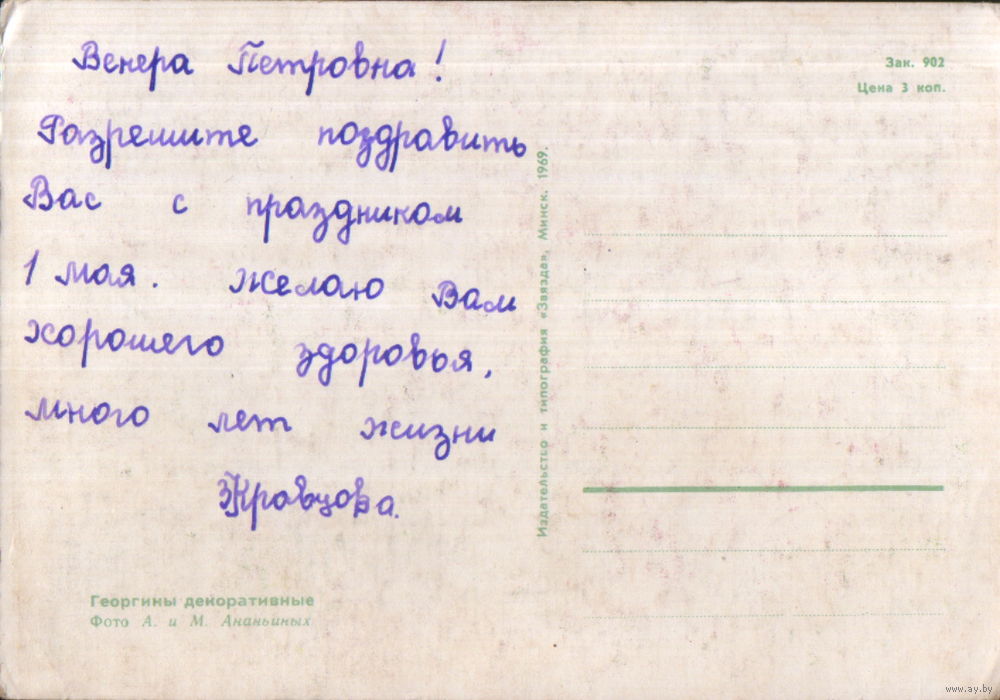 Венера Петровна!
Разрешите поздравить
Вас с праздником
1 мая. желаю Вам
хорошего здоровья,
много лет жизни
Кравцова.
Георгины декоративные
Фото А. и М. Ананьиных
Издательстьо и типография «Звязда», Минск. 1969.
Зак. 902
Цена 3 коп.
www.ay.by